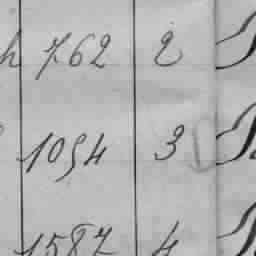 h 762 2
1094 3
1587 4